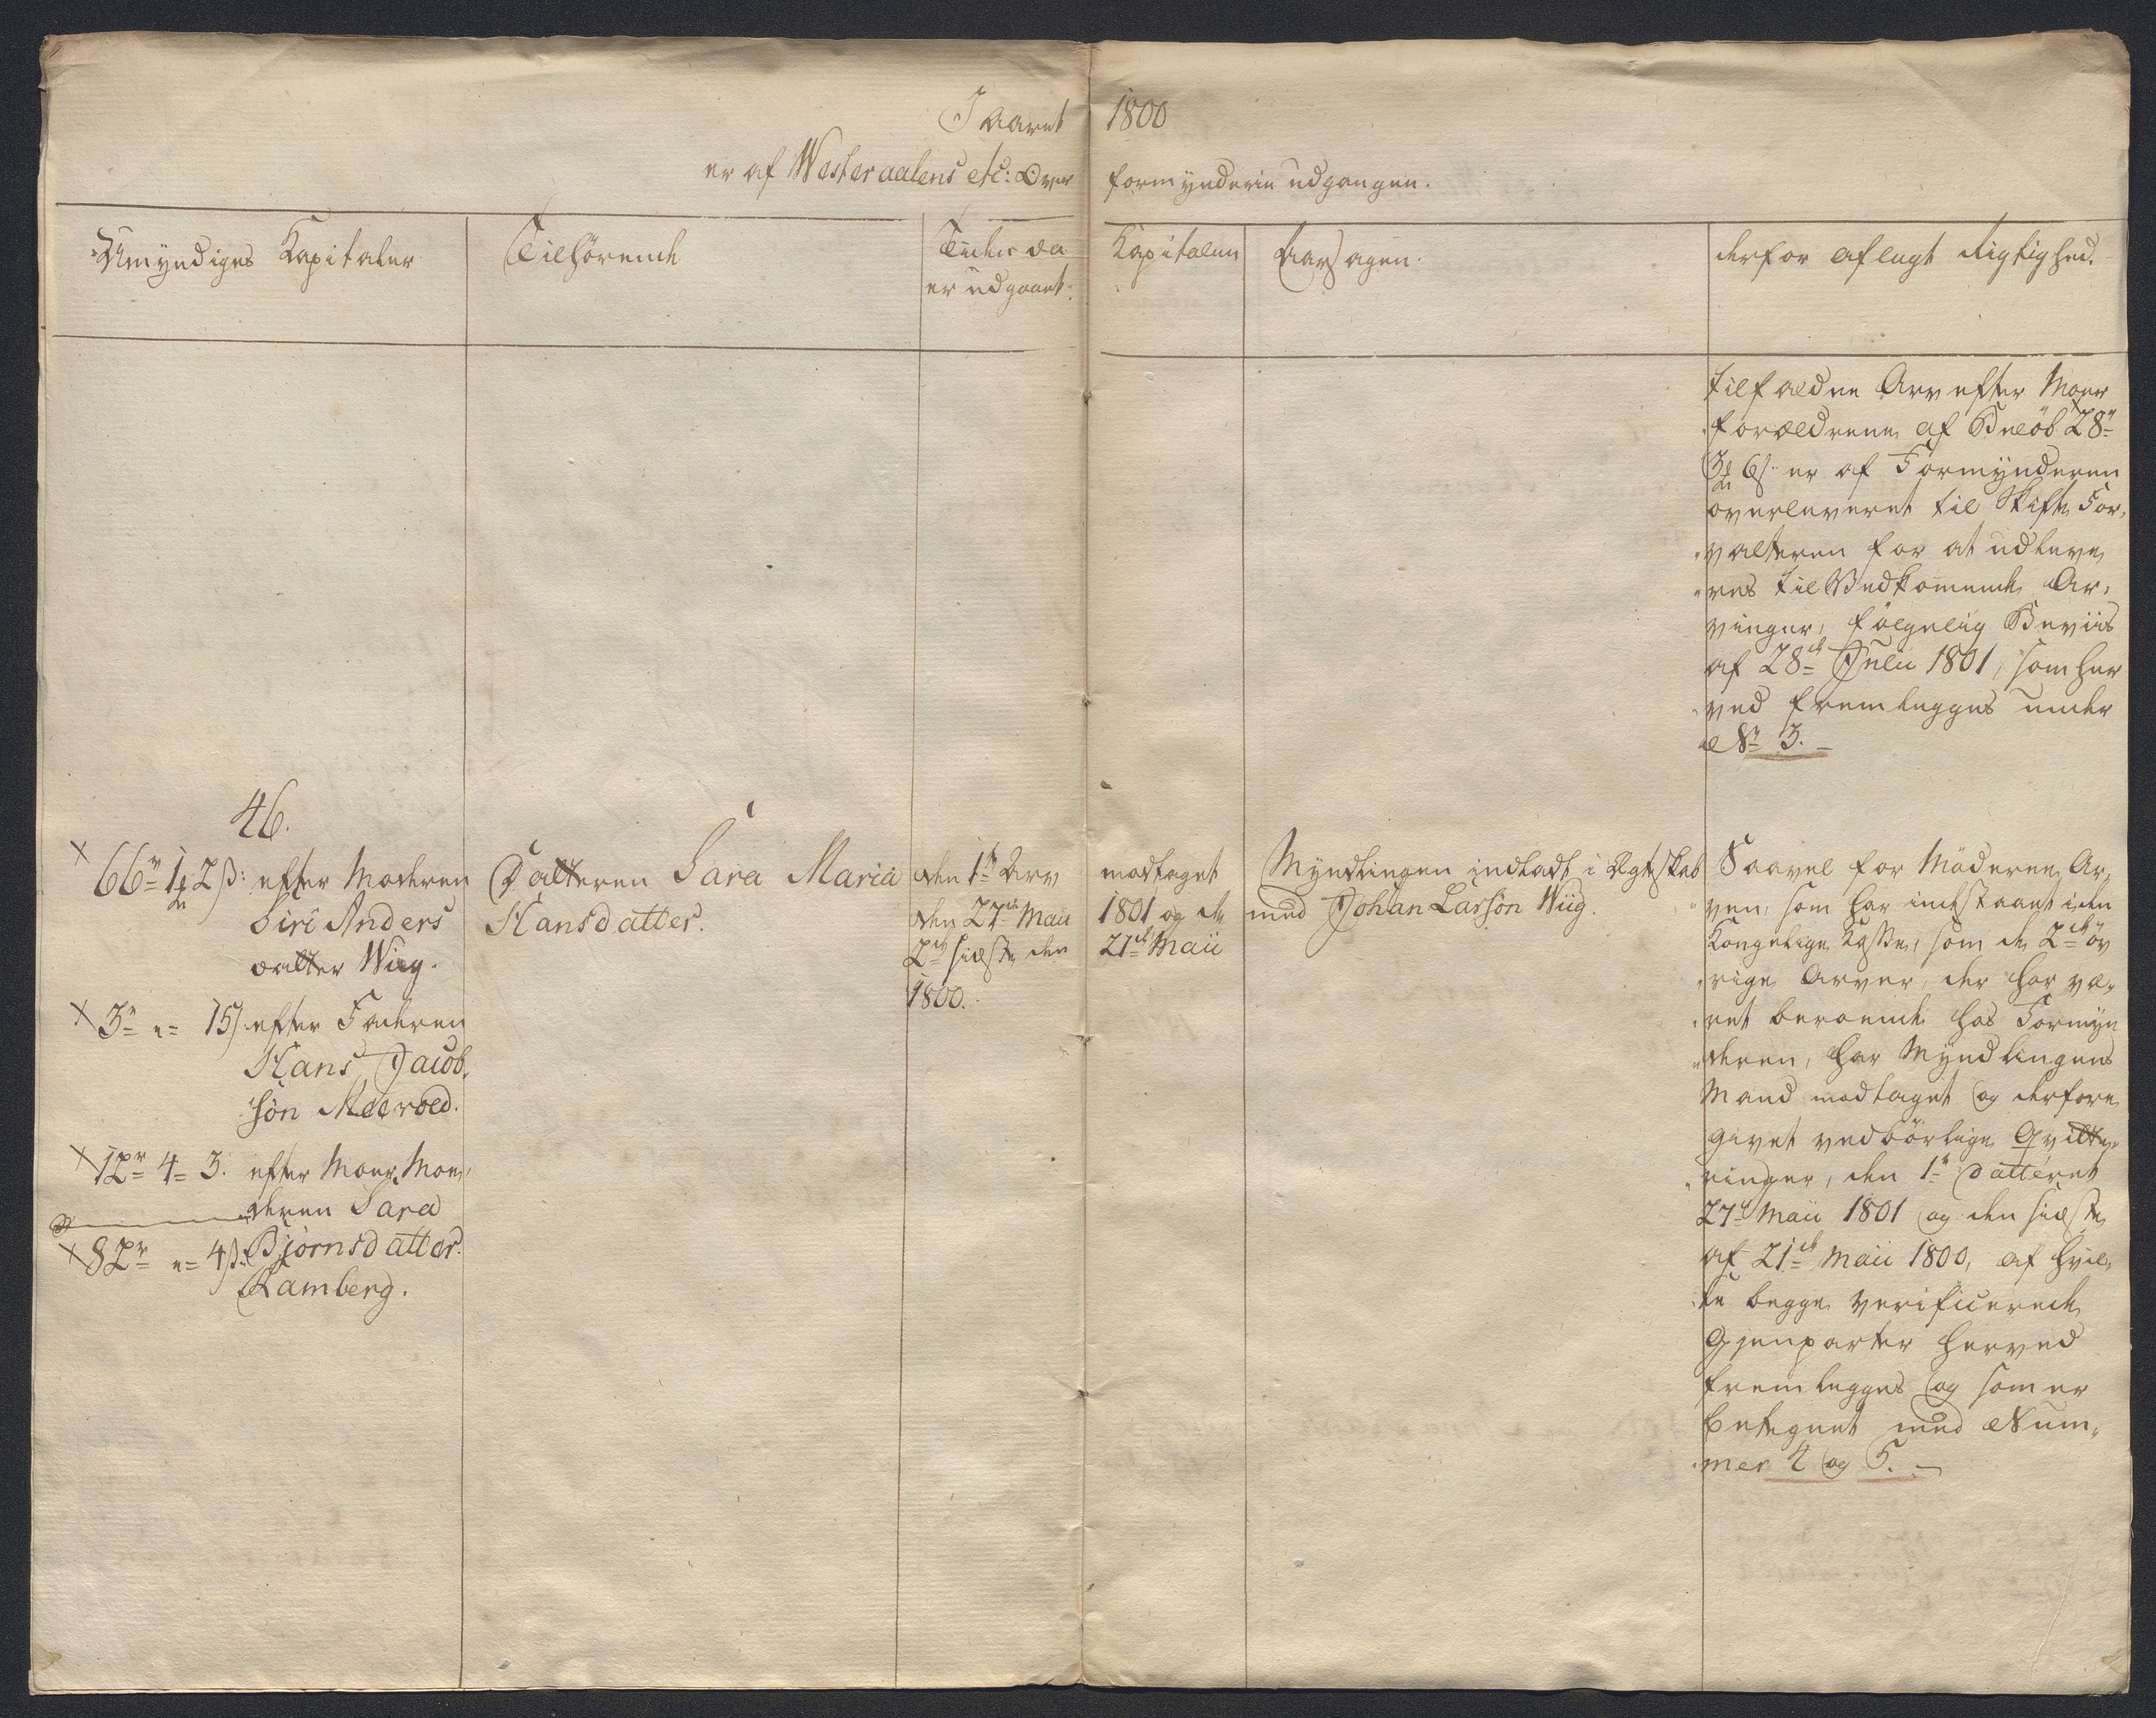 I Aaret 1800
er af Westeraalens etc: Over formynderie udgangen.
Umyndiges Kapitaler
Tilhørende
Tiden da Kapitalen
er udgaaet.
Aarsagen.
derfor aflagt Rigtighed.
tilfaldne Arv efter Moer
forældrene af Beløb 28r
3 6s. er af Formynderen
overleveret til Skifte For,
valteren for at udleve,
res til Vedkommende Ar,
vinger, følgelig Beviis
af 28de Julii 1801, som her
ved fremlegges under
No 3.
46.
66r 1 2s: efter Moderen
Siri Anders
datter Wiig.
3r "= 15s efter Faderen
Hans Jacob,
søn
12r 4= 3. efter Moer Moe,
deren Sara
Bjørnsdatter
Ramberg.
82r "= 4s:
Datteren Sara Maria
Hansdatter.
den 1te Arv modtaget
den 27de Maii 1801 og de
2de sidste den 21de Maii
1800.
Myndlingen indladt i Ægteskab
med Johan Larsøn Wiig.
Saavel for Møderene Ar,
ven, som har indestaaet i den
Kongelige Kasse, som de 2de øv
rige Arver, der har væ,
ret beroende hos Formyn
deren, har Myndlingens
Mand modtaget og derfore
givet vedbørlige Qvitte,
ringer, den 1te datteret
27de Maii 1801 og den sidste
af 21de Maii 1800, af hvil,
ke begge verificerede
Gjenparter herved
fremlegges og som er
betegnet med Num,
mer 4 og 5.